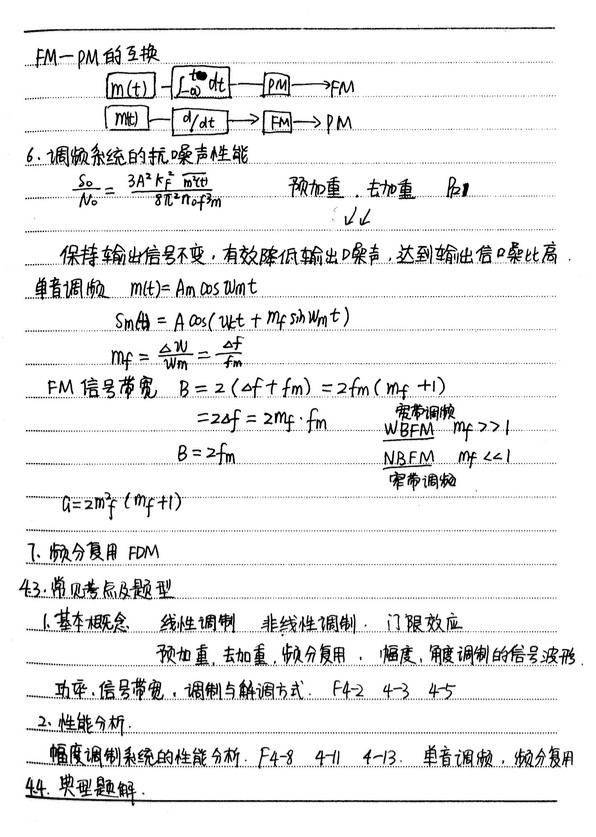 FM—PM的互换
m(t) ∫_{-∞}^{t} dt PM → FM
m(t) d/dt → FM → PM
6、调频系统的抗噪声性能
So/No = 3A²K_F² \overline{m²(t)} / 8π²n₀f³m 预加重、去加重
↙↙
保持输出信号不变,有效降低输出噪声,达到输出信噪比高.
单音调频 m(t)=Am cosWmt
Sm(t) = A cos(Wct + mf sinWmt)
mf = ΔW/Wm = Δf/fm
FM信号带宽 B = 2(Δf+fm) = 2fm(mf+1)
宽带调频
=2Δf = 2mf·fm WBFM mf>>1
B=2fm NBFM mf<<1
窄带调频
G=2m²f(mf+1)
7、频分复用 FDM
4.3.常见考点及题型
1.基本概念 线性调制 非线性调制. 门限效应
预加重,去加重,频分复用,幅度,角度调制的信号波形.
功率、信号带宽,调制与解调方式. F4-2 4-3 4-5
2、性能分析.
幅度调制系统的性能分析. F4-8 4-11 4-13. 单音调频,频分复用
4.4. 典型题解.